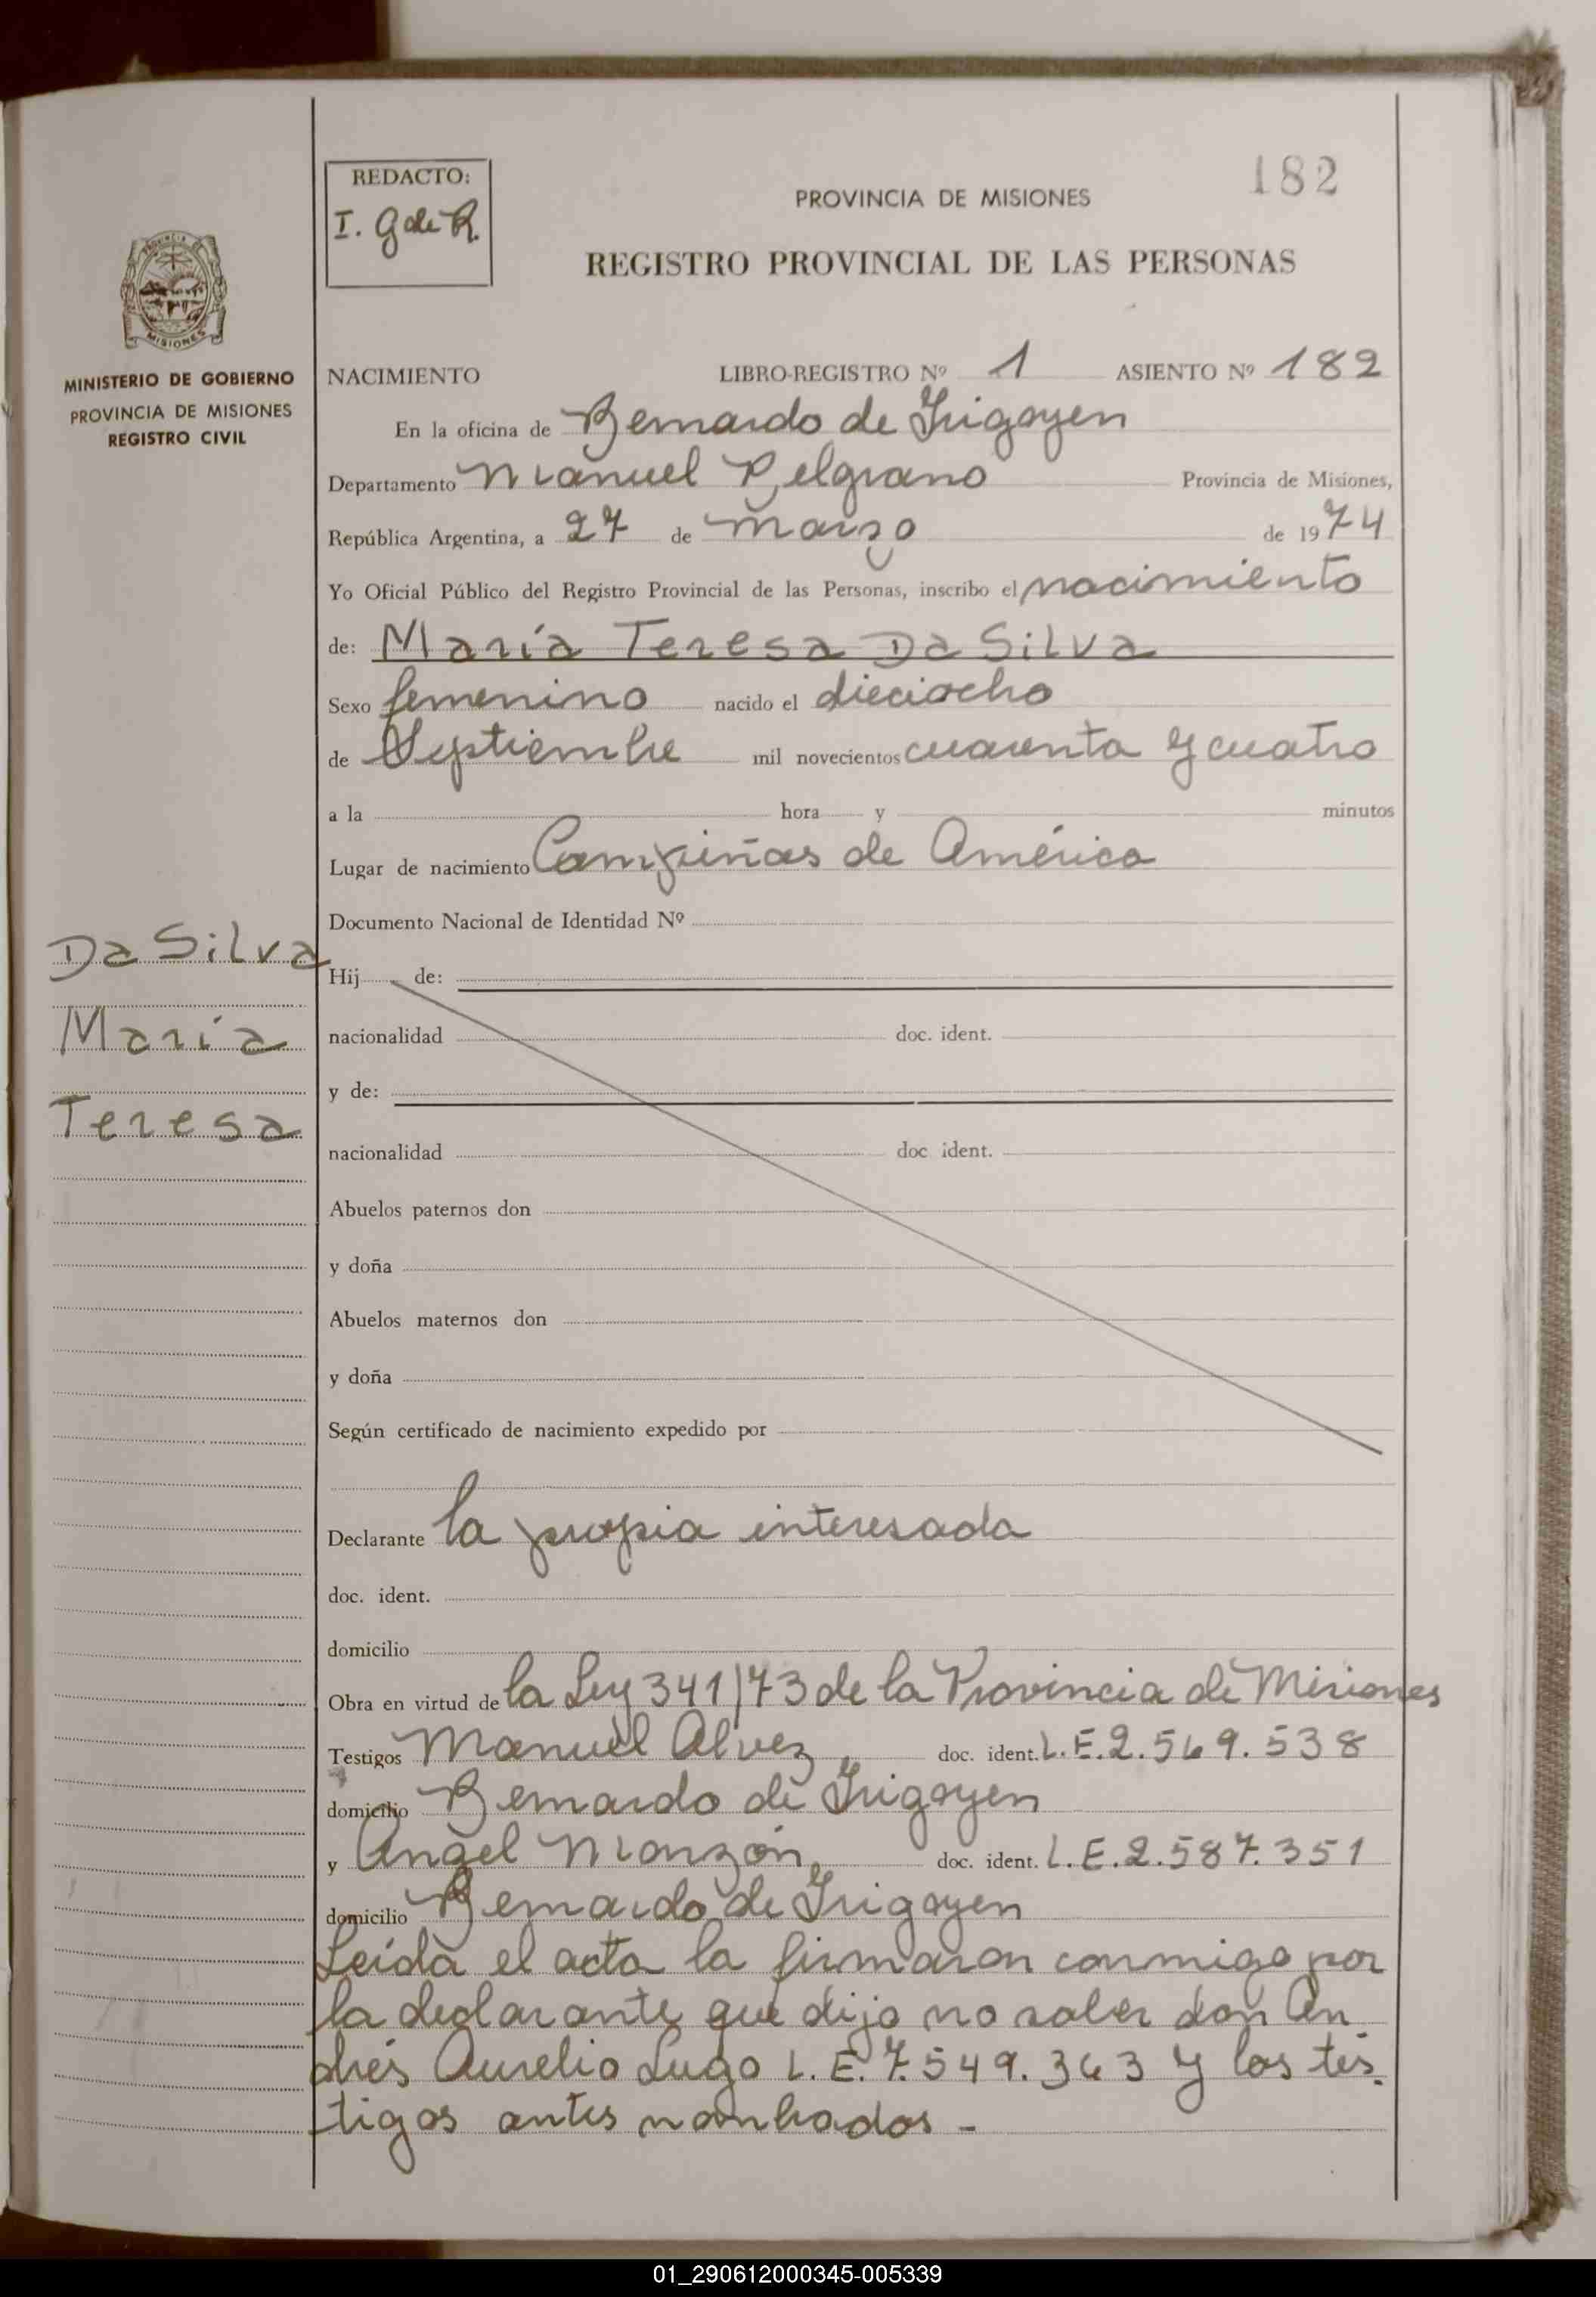 182
REDACTO:
I. G de R.
PROVINCIA DE MISIONES
REGISTRO PROVINCIAL DE LAS PERSONAS
MISIONES
MINISTERIO DE GOBIERNO
PROVINCIA DE MISIONES
REGISTRO CIVIL
NACIMIENTO LIBRO-REGISTRO Nº 1 ASIENTO Nº 182
En la oficina de Bernardo de Irigoyen
Departamento Manuel Belgrano Provincia de Misiones,
República Argentina, a 27 de março de 1974
Yo Oficial Público del Registro Provincial de las Personas, inscribo el nacimiento
de: María Teresa Da Silva
Sexo femenino nacido el dieciocho
de Septiembre mil novecientos cuarenta y cuatro
a la hora y minutos
Lugar de nacimiento Campiñas de América
Documento Nacional de Identidad Nº
Da Silva
María
Teresa
Hij de:
nacionalidad doc. ident.
y de:
nacionalidad doc ident.
Abuelos paternos don
y doña
Abuelos maternos don
y doña
Según certificado de nacimiento expedido por
Declarante la propia interesada
doc. ident.
domicilio
Obra en virtud de la Ley 341/73 de la Provincia de Misiones
Testigos Manuel Alvez, doc. ident. L.E. 2.569.538
domicilio Bernardo de Irigoyen
y Angel Monzón, doc. ident. L.E. 2.587.351
domicilio Bernardo de Irigoyen
Leída el acta la firmaron conmigo por
la declarante que dijo no saber don An
drés Aurelio Lugo L.E. 7.549.363 y los tes.
tigos antes nombrados -
01_290612000345-005339